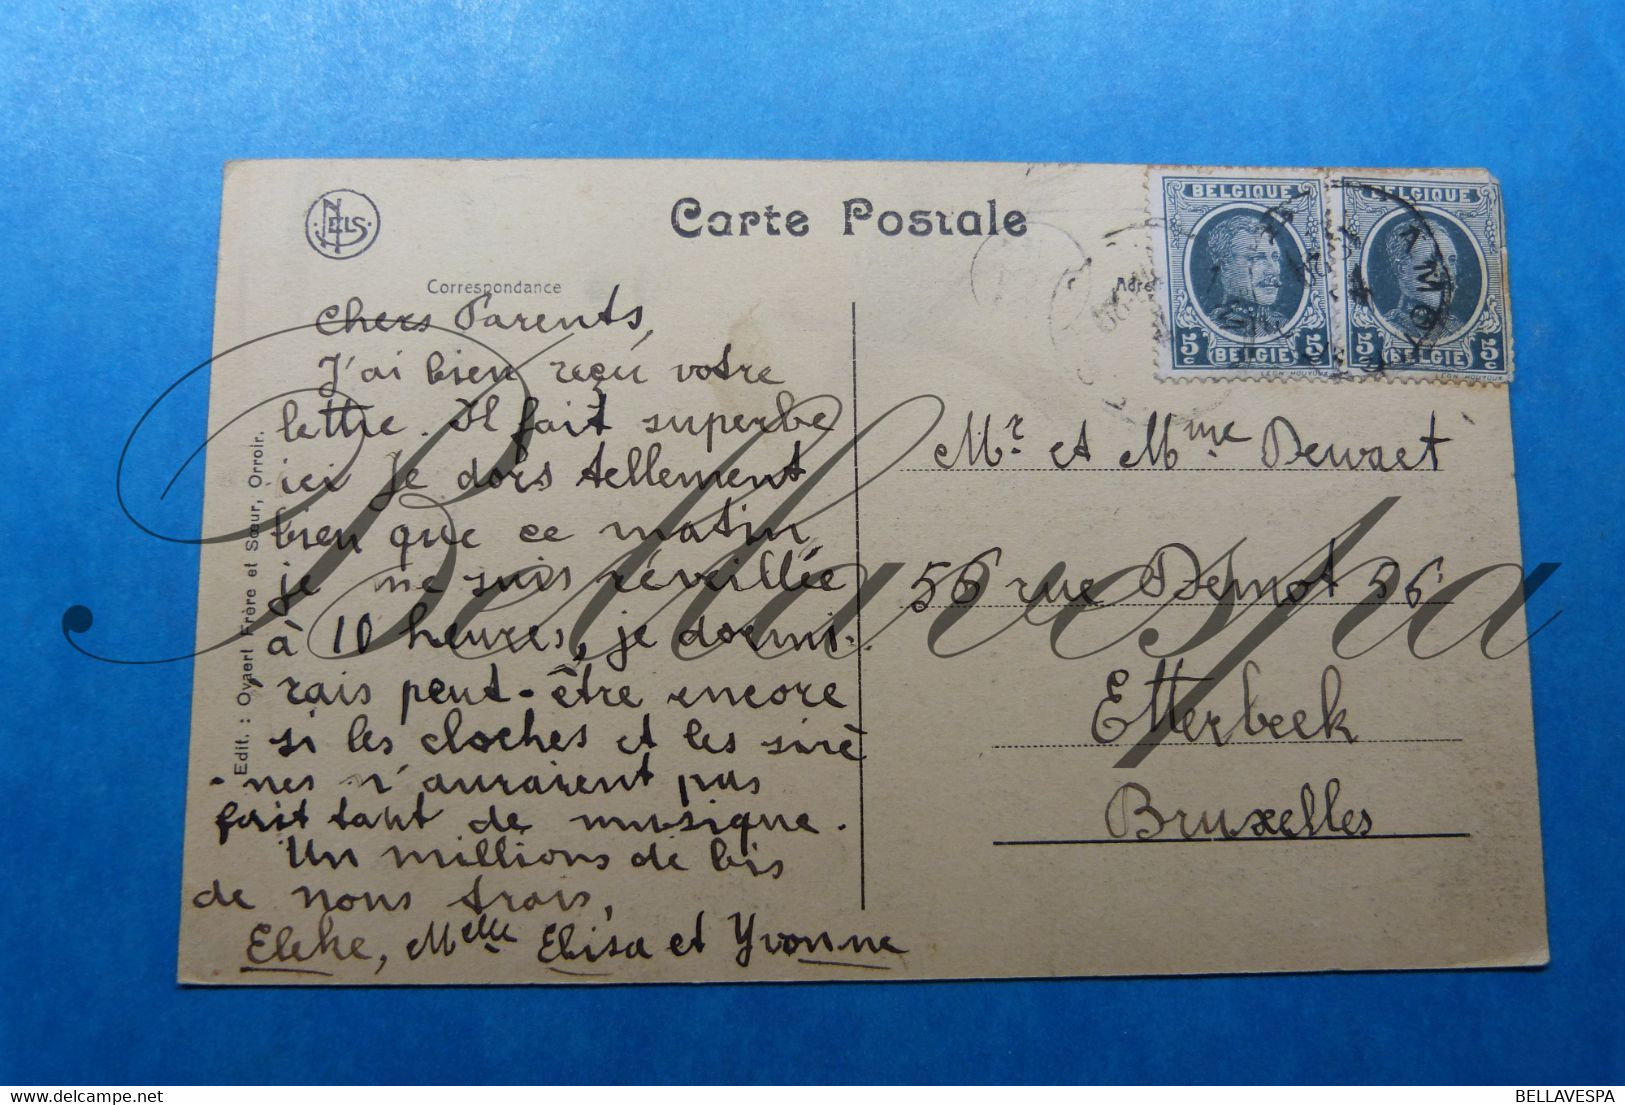 NELS
Carte Postale
Correspondance
BELGIQUE
BELGIQUE
5c BELGIË 5c
5c BELGIË 5c
LEON HOUYOUX
LEON HOUYOUX
chers Parents,
J'ai bien reçu votre
lettre. Il fait superbe
ici Je dors tellement
bien que ce matin
je me suis réveillée
à 10 heures, je dormi-
rais peut-être encore
si les cloches et les sirè
-nes n'auraient pas
fait tant de musique.
Un millions de bis
de nous trois,
Eleke, Melle Elisa et Yvonne
Mr. et Mme Dewaet
56 rue Demot 56
Etterbeek
Bruxelles
Edit. : Ovaert Frère et Sœur, Orroir.
Bellavespa
BELLAVESPA